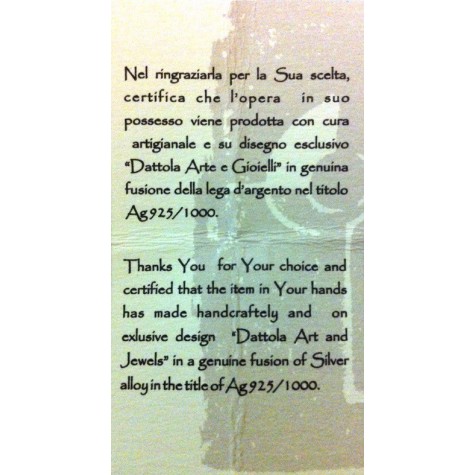 Nel ringraziarla per la Sua scelta,
certifica che l'opera in suo
possesso viene prodotta con cura
artigianale e su disegno esclusivo
"Dattola Arte e Gioielli" in genuina
fusione della lega d'argento nel titolo
Ag925/1000.
Thanks You for Your choice and
certified that the item in Your hands
has made handcraftely and on
exlusive design "Dattola Art and
Jewels" in a genuine fusion of Silver
alloy in the title of Ag925/1000.